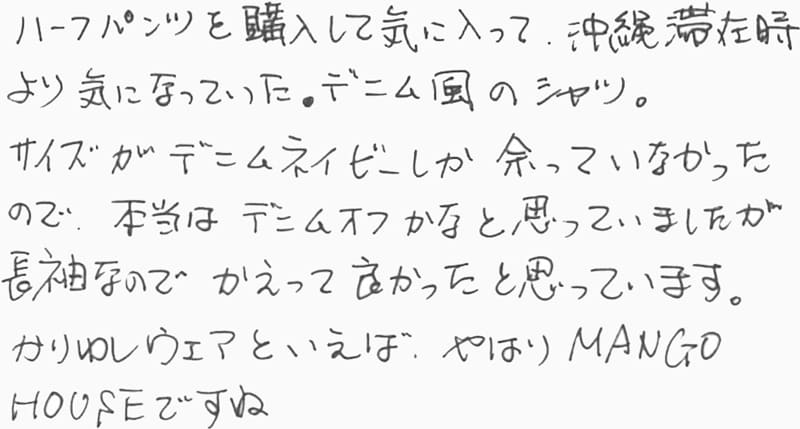 ハーフパンツを購入して気に入って、沖縄滞在時
より気になっていた。デニム風のシャツ。
サイズがデニムネイビーしか余っていなかった
ので、本当はデニムオフかなと思っていましたが
長袖なのでかえって良かったと思っています。
かりゆしウェアといえば、やはりMANGO
HOUSEですね